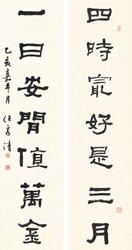 四時最好是三月
一日安閒值萬金
乙亥嘉平月